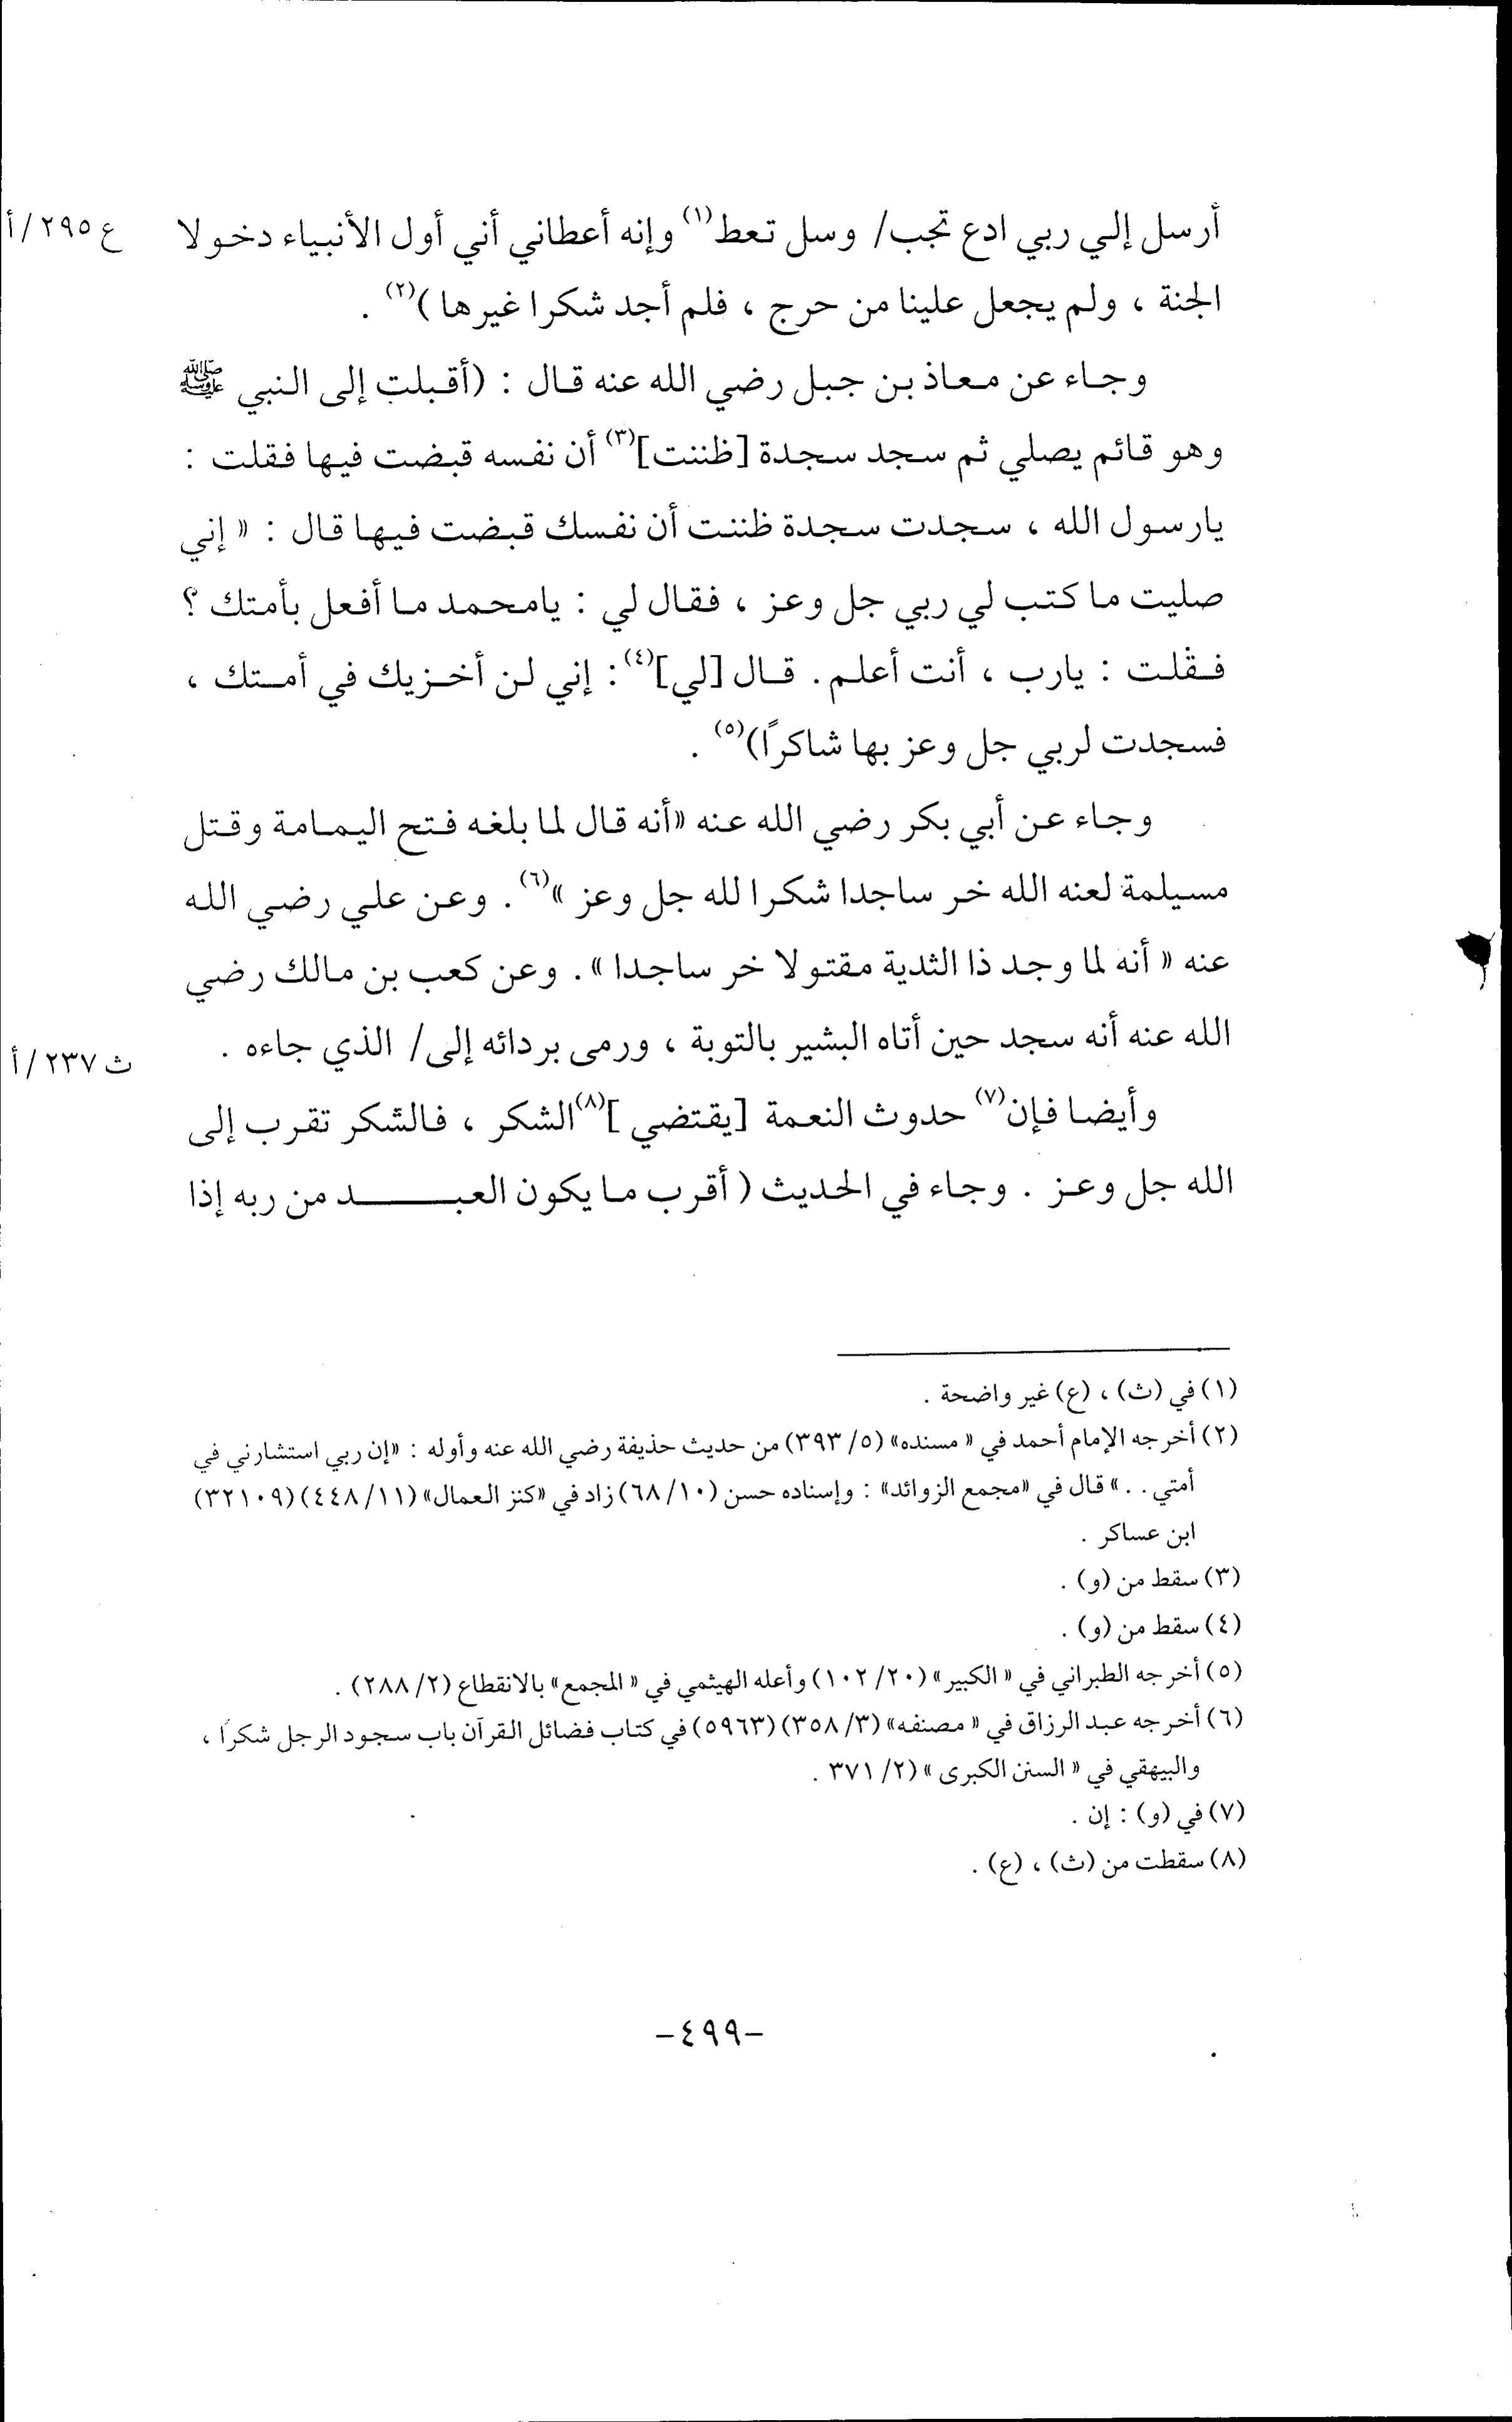 أرسل إلي ربي ادع تجب/ وسل تعط(١) وإنه أعطاني أني أول الأنبياء دخولا ع ٢٩٥/أ
الجنة ، ولم يجعل علينا من حرج ، فلم أجد شكرا غيرها )(٢) .
وجاء عن معاذ بن جبل رضي الله عنه قال : (أقبلت إلى النبي ﷺ
وهو قائم يصلي ثم سجد سجدة [ظننت](٣) أن نفسه قبضت فيها فقلت :
يارسول الله ، سجدت سجدة ظننت أن نفسك قبضت فيها قال : « إني
صليت ما كتب لي ربي جل وعز ، فقال لي : يامحمد ما أفعل بأمتك ؟
فقلت : يارب ، أنت أعلم . قال [لي](٤) : إني لن أخزيك في أمتك ،
فسجدت لربي جل وعز بها شاكرًا)(٥) .
وجاء عن أبي بكر رضي الله عنه «أنه قال لما بلغه فتح اليمامة وقتل
مسيلمة لعنه الله خر ساجدا شكرا لله جل وعز »(٦) . وعن علي رضي الله
عنه « أنه لما وجد ذا الثدية مقتولا خر ساجدا » . وعن كعب بن مالك رضي
الله عنه أنه سجد حين أتاه البشير بالتوبة ، ورمى بردائه إلى/ الذي جاءه . ث ٢٣٧/أ
وأيضا فإن(٧) حدوث النعمة [يقتضي ](٨) الشكر ، فالشكر تقرب إلى
الله جل وعز . وجاء في الحديث ( أقرب ما يكون العبـــــد من ربه إذا
(١) في (ث) ، (ع) غير واضحة .
(٢) أخرجه الإمام أحمد في « مسنده» (٥/ ٣٩٣) من حديث حذيفة رضي الله عنه وأوله : «إن ربي استشارني في
أمتي . .» قال في «مجمع الزوائد» : وإسناده حسن (١٠/ ٦٨) زاد في «كنز العمال» (١١/ ٤٤٨) (٣٢١٠٩)
ابن عساكر .
(٣) سقط من (و) .
(٤) سقط من (و) .
(٥) أخرجه الطبراني في « الكبير» (٢٠/ ١٠٢) وأعله الهيثمي في « المجمع» بالانقطاع (٢/ ٢٨٨) .
(٦) أخرجه عبد الرزاق في « مصنفه» (٣/ ٣٥٨) (٥٩٦٣) في كتاب فضائل القرآن باب سجود الرجل شكرًا ،
والبيهقي في « السنن الكبرى » (٢/ ٣٧١ .
(٧) في (و) : إن .
(٨) سقطت من (ث) ، (ع) .
-٤٩٩-